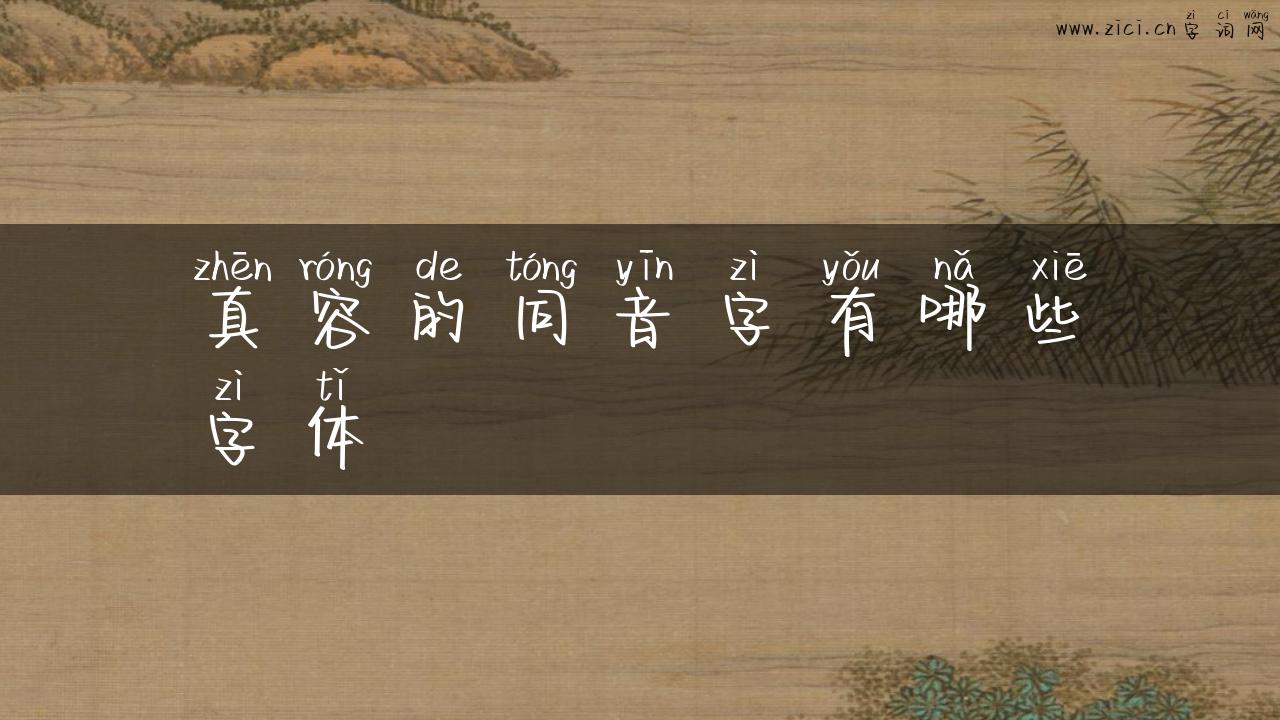 zì cí wǎng
www.zici.cn字词网
zhēn róng de tóng yīn zì yǒu nǎ xiē
真容的同音字有哪些
zì tǐ
字体